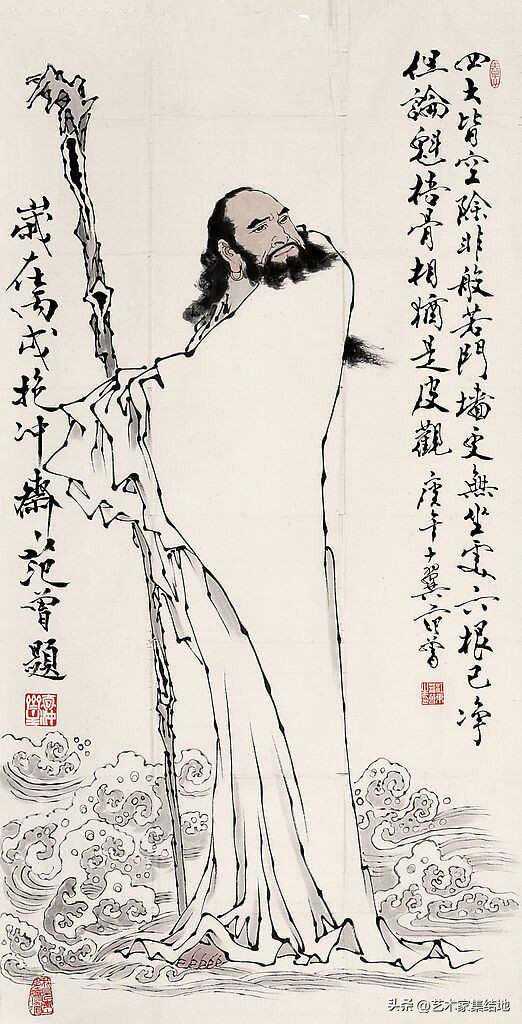 四大皆空除非般若門墻更無坐處六根已净
但論魁梧骨相猶是皮觀 庚午十翼范曾
歲在丙戌抱冲齋范曾題
头条 @艺术家集结地